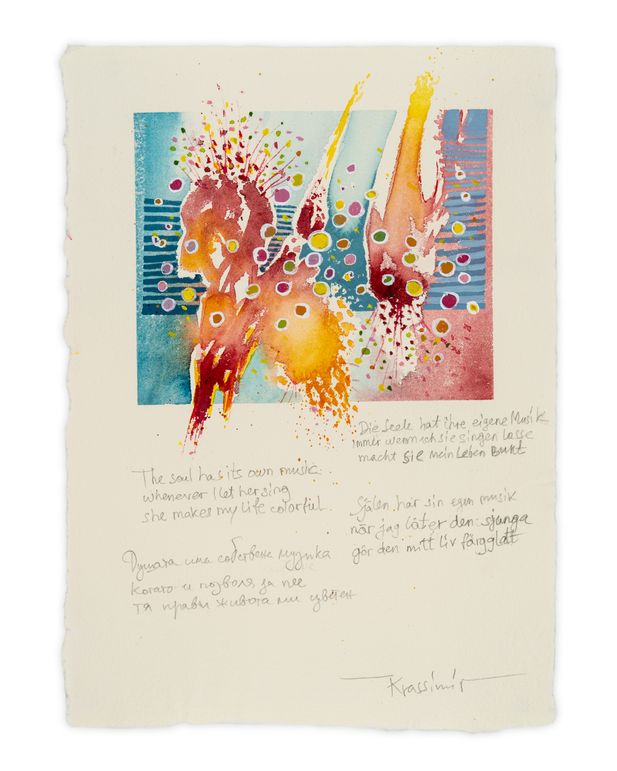 Die Seele hat ihre eigene Musik
immer wenn ich sie singen lasse
macht sie mein Leben BUNT
The soul has its own musik
whenever I let her sing
she makes my life colorful.
Själen har sin egen musik
när jag låter den sjunga
gör den mitt liv färgglatt
Душата има собствена музика
когато и позволя да пее
тя прави живота ми цветен
Krassimir